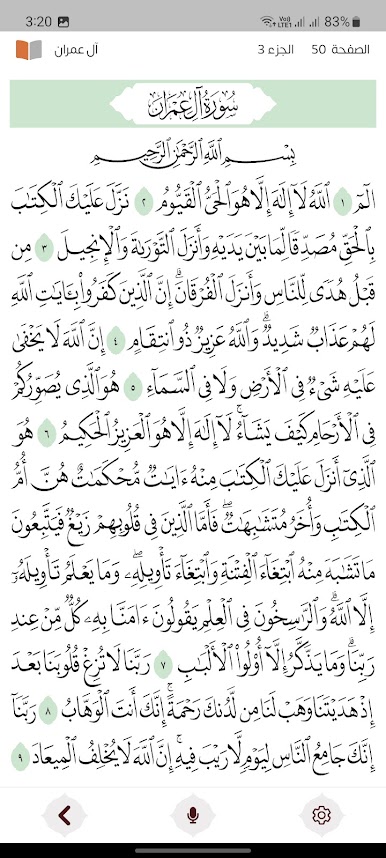 3:20 83%
الصفحة 50 الجزء 3 آل عمران
سُورَةُ آلِ عِمْرَانَ
بِسْمِ ٱللَّهِ ٱلرَّحْمَٰنِ ٱلرَّحِيمِ
الٓمٓ ١ ٱللَّهُ لَآ إِلَٰهَ إِلَّا هُوَ ٱلْحَىُّ ٱلْقَيُّومُ ٢ نَزَّلَ عَلَيْكَ ٱلْكِتَٰبَ
بِٱلْحَقِّ مُصَدِّقًا لِّمَا بَيْنَ يَدَيْهِ وَأَنزَلَ ٱلتَّوْرَىٰةَ وَٱلْإِنجِيلَ ٣ مِن
قَبْلُ هُدًى لِّلنَّاسِ وَأَنزَلَ ٱلْفُرْقَانَۗ إِنَّ ٱلَّذِينَ كَفَرُوا۟ بِـَٔايَٰتِ ٱللَّهِ
لَهُمْ عَذَابٌ شَدِيدٌۗ وَٱللَّهُ عَزِيزٌ ذُو ٱنتِقَامٍ ٤ إِنَّ ٱللَّهَ لَا يَخْفَىٰ
عَلَيْهِ شَىْءٌ فِى ٱلْأَرْضِ وَلَا فِى ٱلسَّمَآءِ ٥ هُوَ ٱلَّذِى يُصَوِّرُكُمْ
فِى ٱلْأَرْحَامِ كَيْفَ يَشَآءُۚ لَآ إِلَٰهَ إِلَّا هُوَ ٱلْعَزِيزُ ٱلْحَكِيمُ ٦ هُوَ
ٱلَّذِىٓ أَنزَلَ عَلَيْكَ ٱلْكِتَٰبَ مِنْهُ ءَايَٰتٌ مُّحْكَمَٰتٌ هُنَّ أُمُّ
ٱلْكِتَٰبِ وَأُخَرُ مُتَشَٰبِهَٰتٌۖ فَأَمَّا ٱلَّذِينَ فِى قُلُوبِهِمْ زَيْغٌ فَيَتَّبِعُونَ
مَا تَشَٰبَهَ مِنْهُ ٱبْتِغَآءَ ٱلْفِتْنَةِ وَٱبْتِغَآءَ تَأْوِيلِهِۦۖ وَمَا يَعْلَمُ تَأْوِيلَهُۥٓ
إِلَّا ٱللَّهُۗ وَٱلرَّٰسِخُونَ فِى ٱلْعِلْمِ يَقُولُونَ ءَامَنَّا بِهِۦ كُلٌّ مِّنْ عِندِ
رَبِّنَاۗ وَمَا يَذَّكَّرُ إِلَّآ أُو۟لُوا۟ ٱلْأَلْبَٰبِ ٧ رَبَّنَا لَا تُزِغْ قُلُوبَنَا بَعْدَ
إِذْ هَدَيْتَنَا وَهَبْ لَنَا مِن لَّدُنكَ رَحْمَةًۚ إِنَّكَ أَنتَ ٱلْوَهَّابُ ٨ رَبَّنَآ
إِنَّكَ جَامِعُ ٱلنَّاسِ لِيَوْمٍ لَّا رَيْبَ فِيهِۚ إِنَّ ٱللَّهَ لَا يُخْلِفُ ٱلْمِيعَادَ ٩